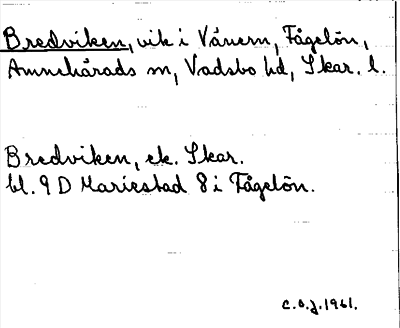 Bredviken, vik i Vänern, Fågelön,
Amnehärads sn, Vadsbo hd, Skar. l.
Bredviken, ek. Skar.
bl. 9 D Mariestad 8 i Fågelön.
C.O.J. 1961.